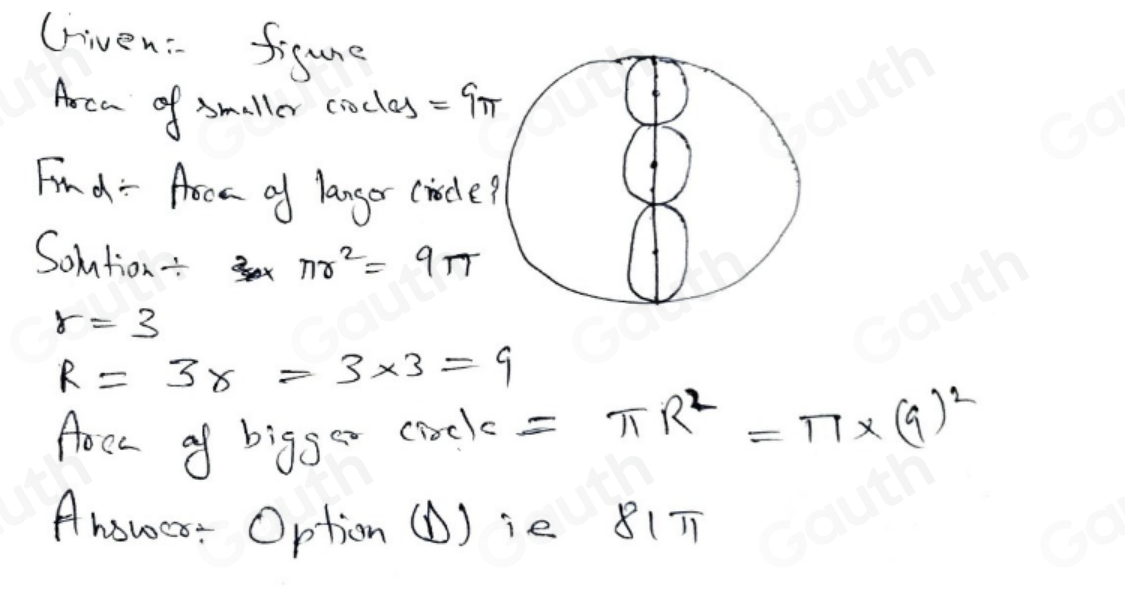 Given:- figure
Area of smaller circles = 9π
Find:- Area of larger circle?
Solution:- πr² = 9π
r = 3
R = 3r = 3×3 = 9
Area of bigger circle = πR² = π×(9)²
Answer:- Option (D) ie 81π